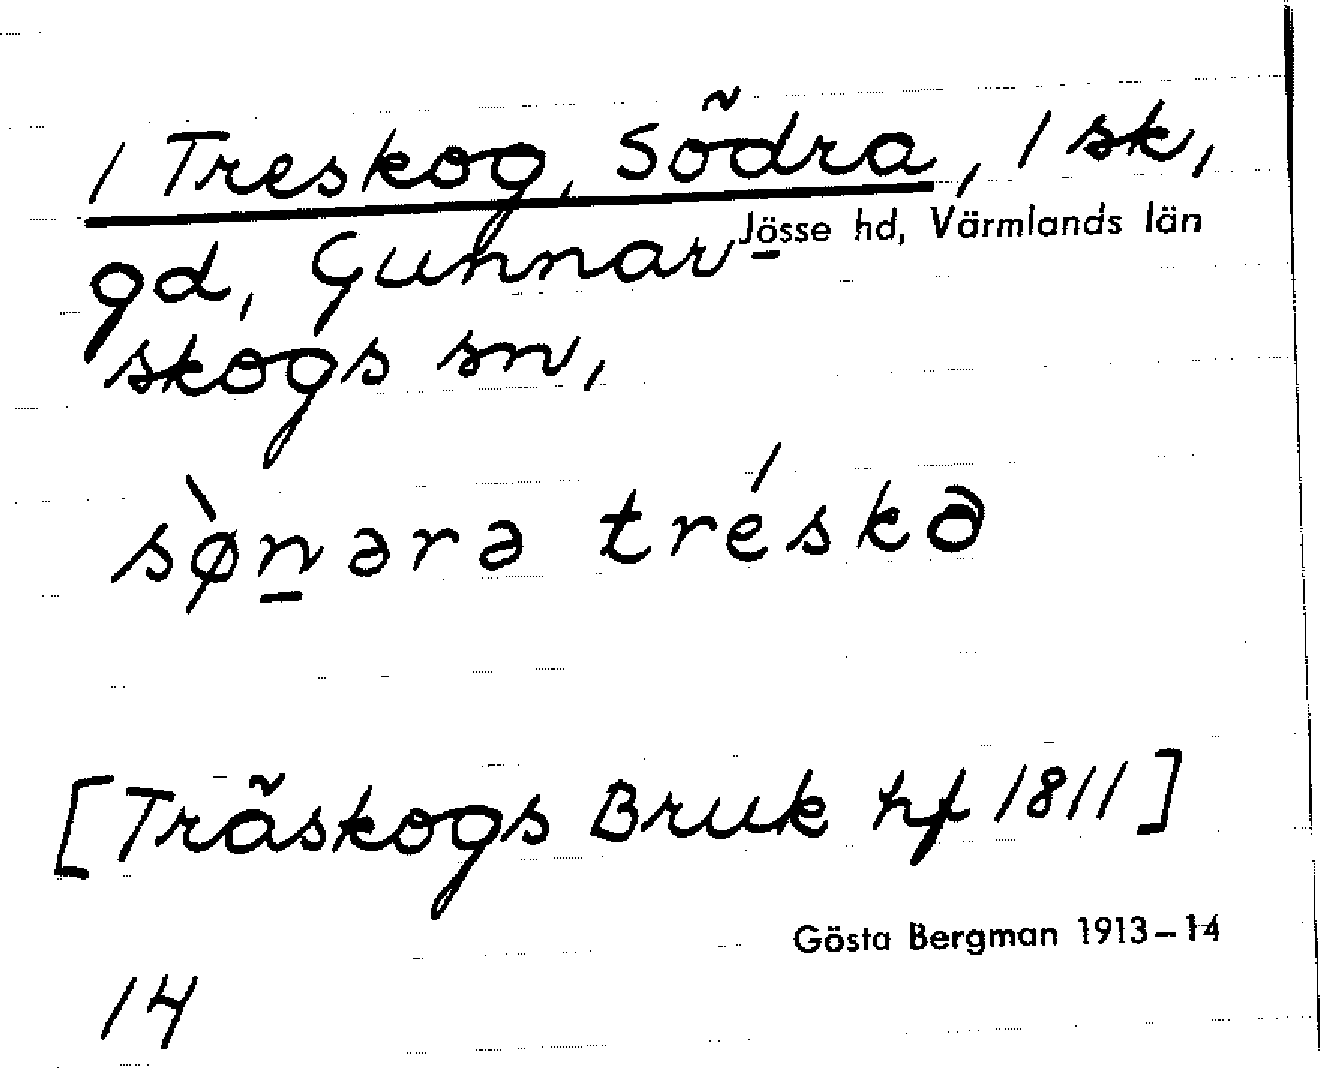 1 Treskog, Södra, 1 sk,
Jösse hd, Värmlands län
gd, Gunnar
skogs sn,
sø̀n̲ərə tréskə
[Träskogs Bruk hf 1811]
Gösta Bergman 1913–14
14